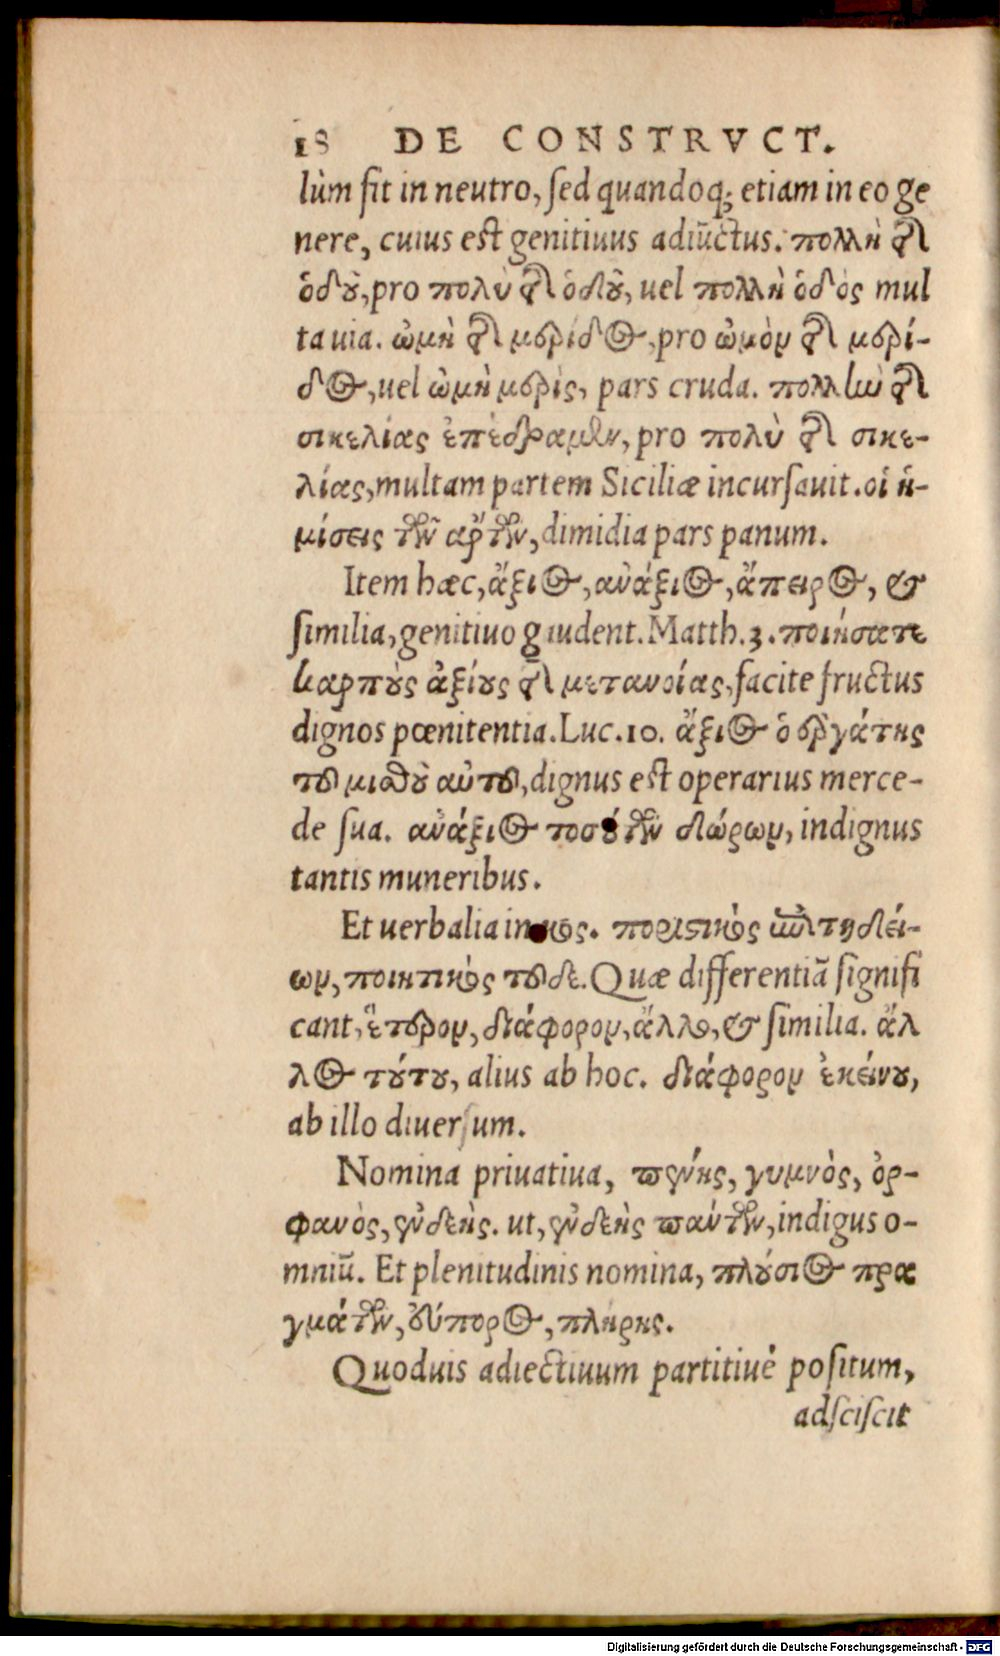 18 DE CONSTRVCT.
lùm fit in neutro, sed quandoq; etiam in eo ge
nere, cuius est genitiuus adiũctus. πολλὴ τῆς
ὁδοῦ, pro πολὺ τῆς ὁδοῦ, uel πολλὴ ὁδός mul
ta uia. ὠμὴ τῆς μερίδος, pro ὠμὸν τῆς μερί-
δος, uel ὠμὴ μερὶς, pars cruda. πολλὴν τῆς
σικελίας ἐπέδραμεν, pro πολὺ τῆς σικε-
λίας, multam partem Siciliæ incursauit. οἱ ἡ-
μίσεις τῶν ἄρτων, dimidia pars panum.
Item hæc, ἄξιος, ἀνάξιος, ἄπειρος, &
similia, genitiuo gaudent. Matth. 3. ποιήσατε
καρποὺς ἀξίους τῆς μετανοίας, facite fructus
dignos pœnitentia. Luc. 10. ἄξιος ὁ ἐργάτης
τοῦ μισθοῦ αὐτοῦ, dignus est operarius merce-
de sua. ἀνάξιος τοσούτων δώρων, indignus
tantis muneribus.
Et uerbalia in κος. ποριστικὸς ἐπιτηδεί-
ων, ποιητικὸς τοῦδε. Quæ differentiã signifi
cant, ἕτερον, διάφορον, ἄλλο, & similia. ἄλ
λος τούτου, alius ab hoc. διάφορον ἐκείνου,
ab illo diuersum.
Nomina priuatiua, πένης, γυμνὸς, ὀρ-
φανὸς, ἐνδεὴς. ut, ἐνδεὴς πάντων, indigus o-
mniũ. Et plenitudinis nomina, πλούσιος πρα
γμάτων, εὔπορος, πλήρης.
Quoduis adiectiuum partitiuè positum,
adsciscit
Digitalisierung gefördert durch die Deutsche Forschungsgemeinschaft - DFG